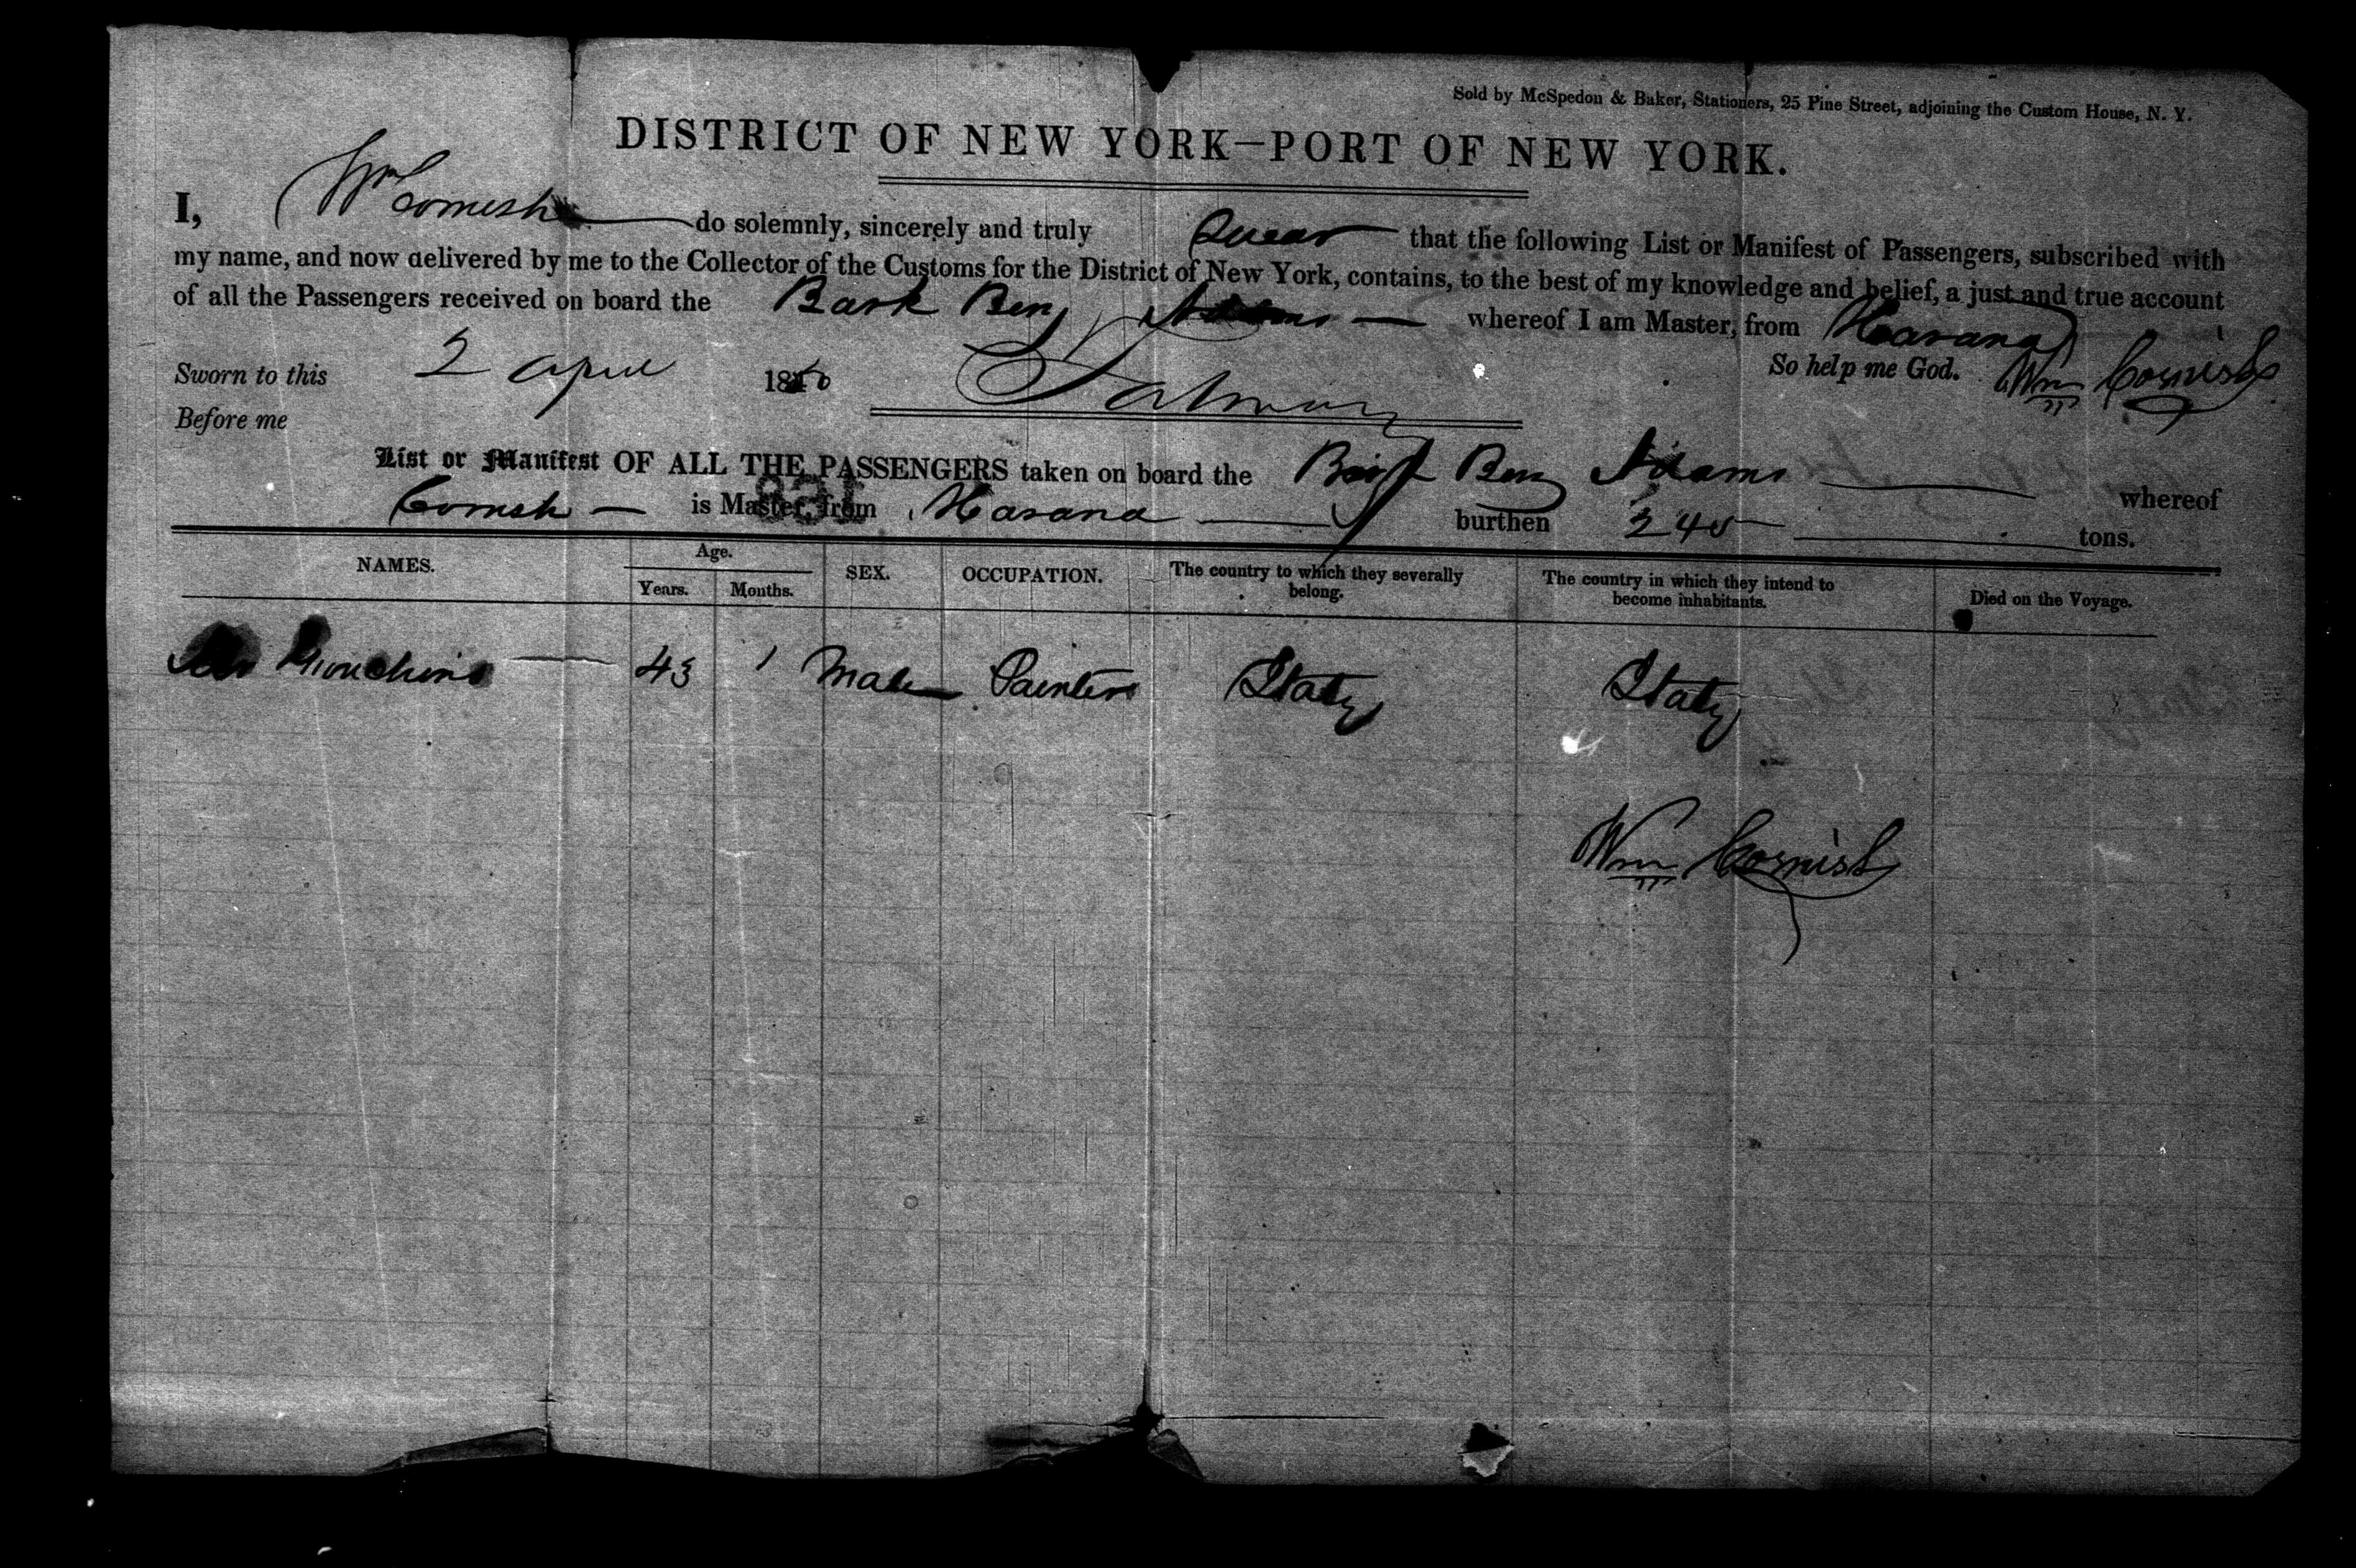 Sold by McSpedon & Baker, Stationers, 25 Pine Street, adjoining the Custom House, N. Y.
DISTRICT OF NEW YORK—PORT OF NEW YORK.
I, Wm Cornish do solemnly, sincerely and truly Swear that the following List or Manifest of Passengers, subscribed with
my name, and now delivered by me to the Collector of the Customs for the District of New York, contains, to the best of my knowledge and belief, a just and true account
of all the Passengers received on board the Bark Benj Adams whereof I am Master, from Havana
Sworn to this 2 April 1850 So help me God. Wm Cornish
Before me
List or Manifest OF ALL THE PASSENGERS taken on board the Benj Adams whereof
Cornish is Master, from Havana burthen 240 tons.
NAMES. Age. SEX. OCCUPATION. The country to which they severally belong. The country in which they intend to become inhabitants. Died on the Voyage.
Years. Months.
43 1 Male Painter Italy Italy
Wm Cornish